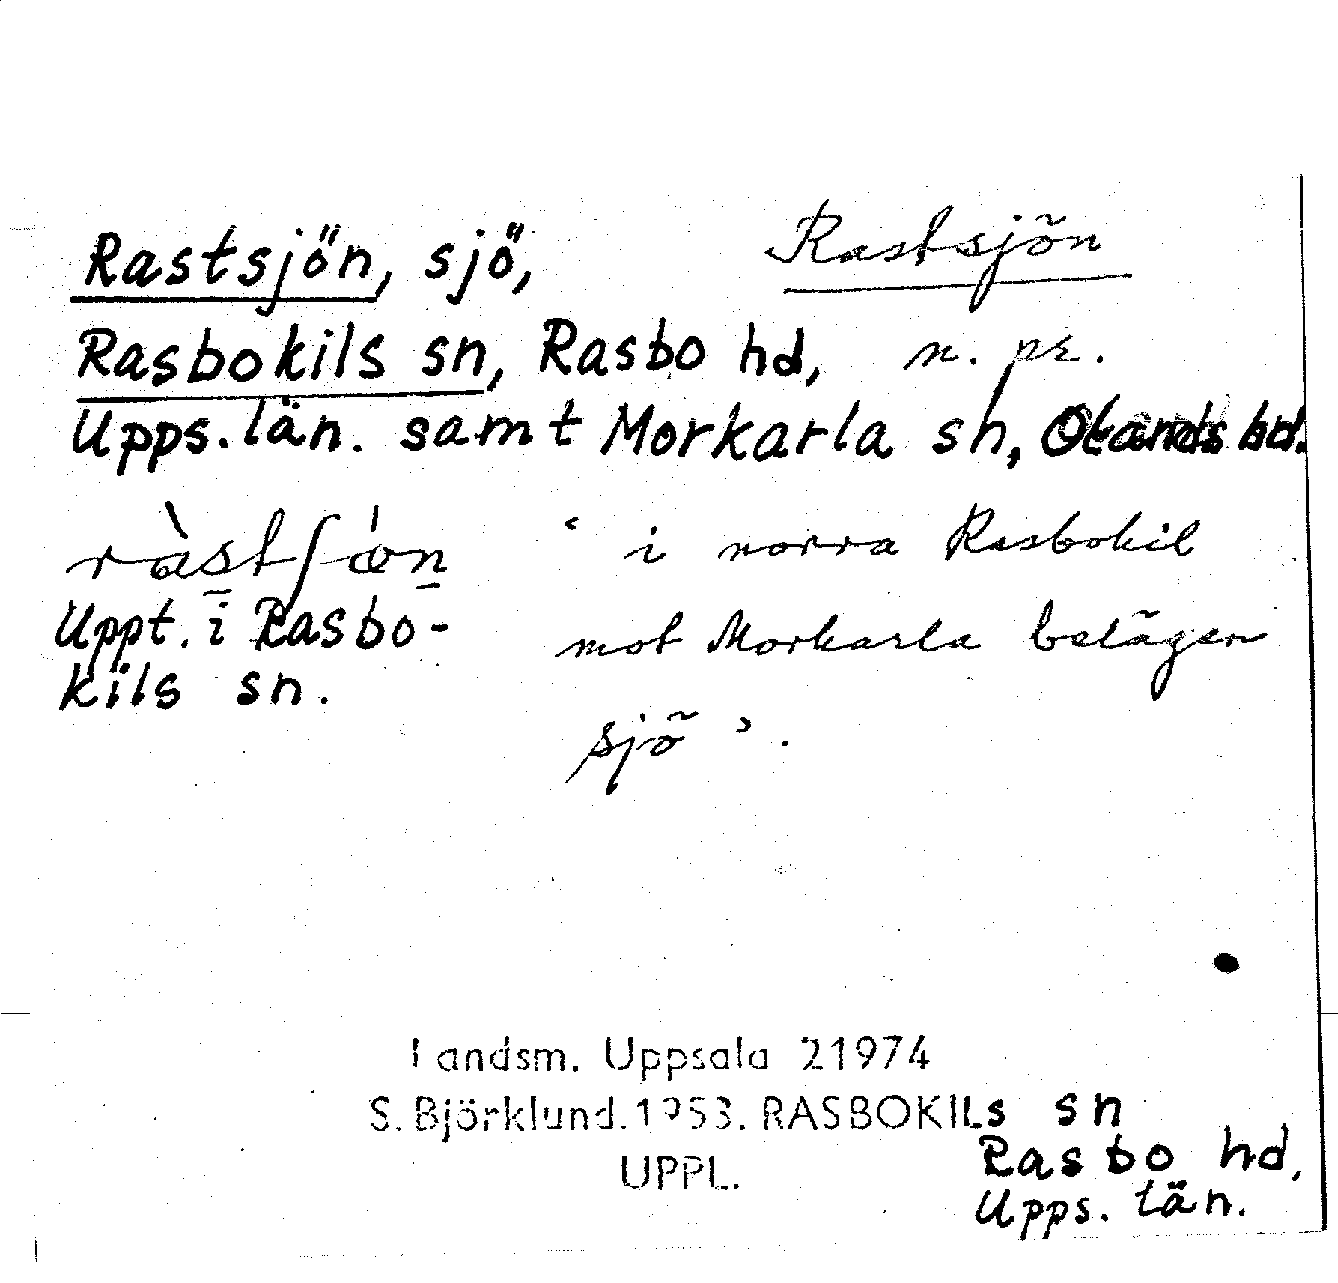 Rastsjön, sjö,
Rastsjön
Rasbokils sn, Rasbo hd,
n. pr.
Upps. län. samt Morkarla sn, Olands hd.
ràstʃǿn
Uppt. i Rasbo-
kils sn.
‘ i norra Rasbokil
mot Morkarla belägen
sjö ’.
Landsm. Uppsala 21974
S. Björklund. 1953. RASBOKILs sn
Rasbo hd,
UPPL.
Upps. län.